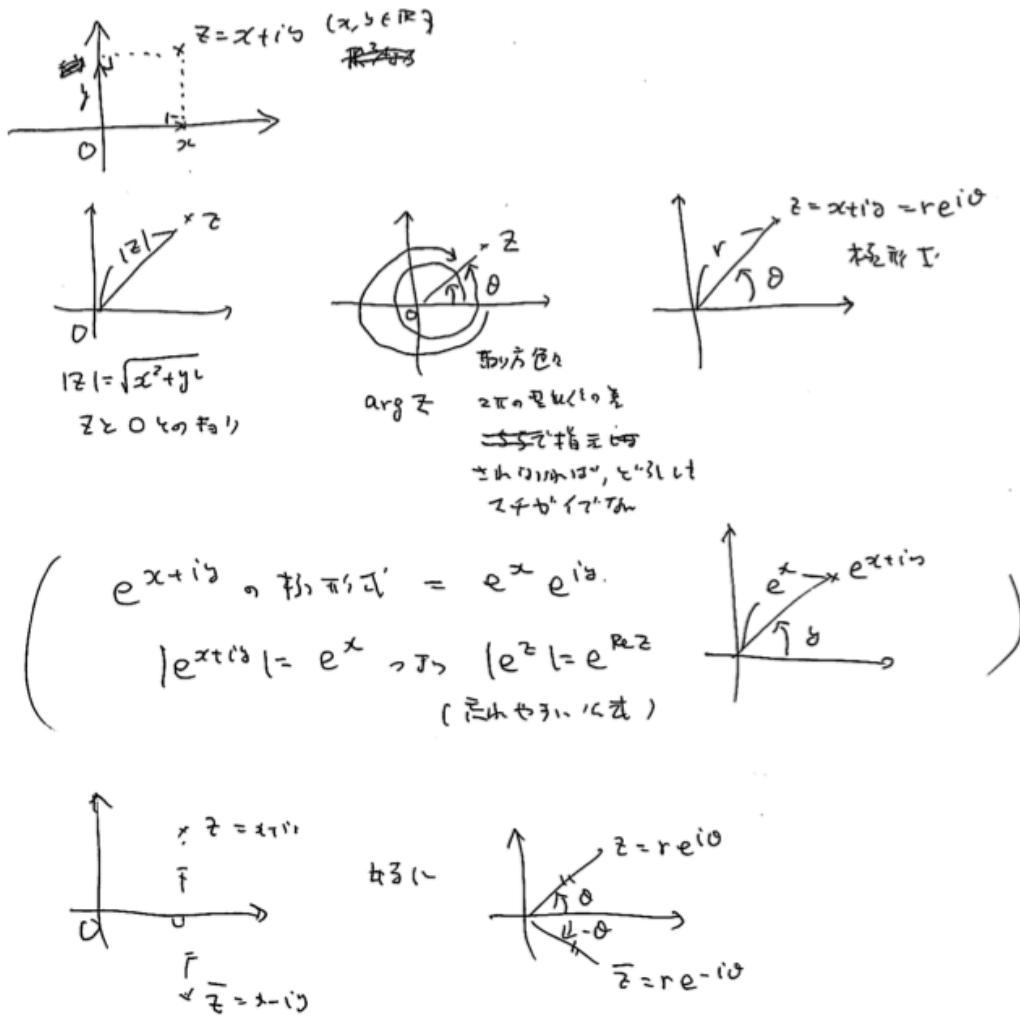 z=x+iy (x, y ∈ ℝ)
y
O
x
|z|
z
O
|z|=√x²+y²
zと0とのキョリ
z
θ
0
arg z
取り方色々
2πの整数倍の差
で指定
されなければ, どうしても
マチガイでない
z=x+iy=re^{iθ}
r
θ
極形式
e^{x+iy}の極形式 = e^x e^{iy}.
|e^{x+iy}|=e^x つまり |e^z|=e^{Re z}
(忘れやすい公式)
e^x
e^{x+iy}
y
z=x+iy
O
z̄=x-iy
z=re^{iθ}
θ
-θ
z̄=re^{-iθ}